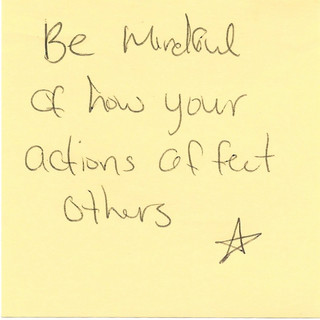 Be Mindful
of how your
actions affect
others